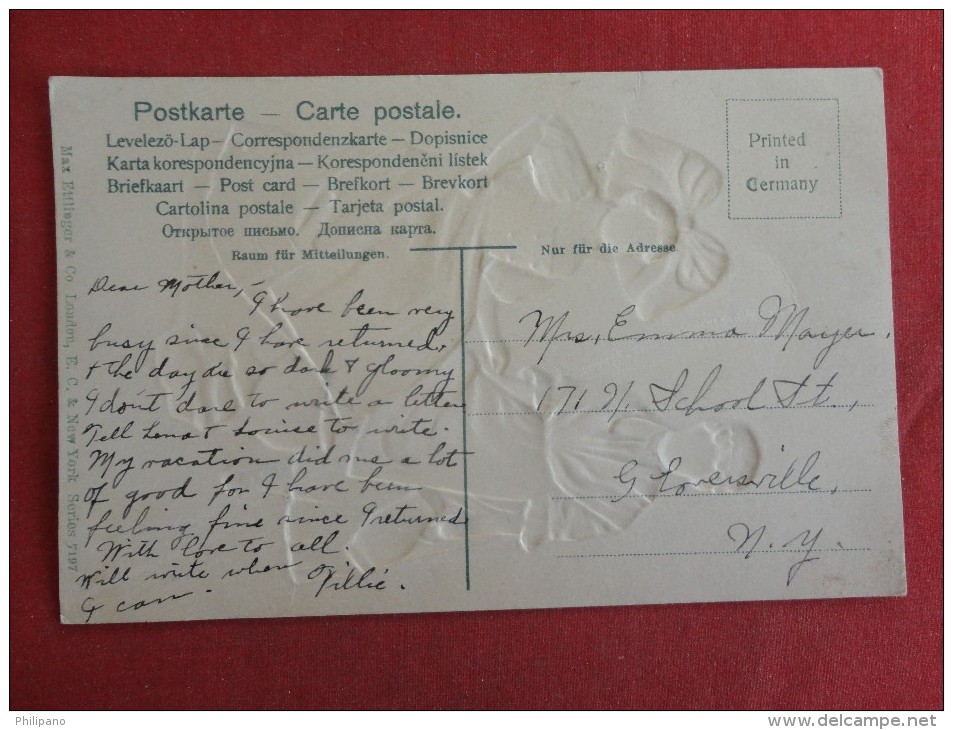 Postkarte — Carte postale.
Levelező-Lap — Correspondenzkarte — Dopisnice
Karta korespondencyjna — Korespondenčni lístek
Briefkaart — Post card — Brefkort — Brevkort
Cartolina postale — Tarjeta postal.
Открытое письмо. Дописна карта.
Raum für Mitteilungen.
Nur für die Adresse
Printed
in
Germany
Max Ettlinger & Co. London, E. C. & New York Series 7197
Dear Mother, —
I have been very
busy since I have returned.
& the day are so dark & gloomy
I don't dare to write a letter
Tell Lena & Louise to write.
My vacation did me a lot
of good for I have been
feeling fine since I returned
With love to all.
Will write when
I can. Tillie.
Mrs. Emma Mayer.
171 School St.,
Gloversville,
N. Y.
Philipano
www.delcampe.net